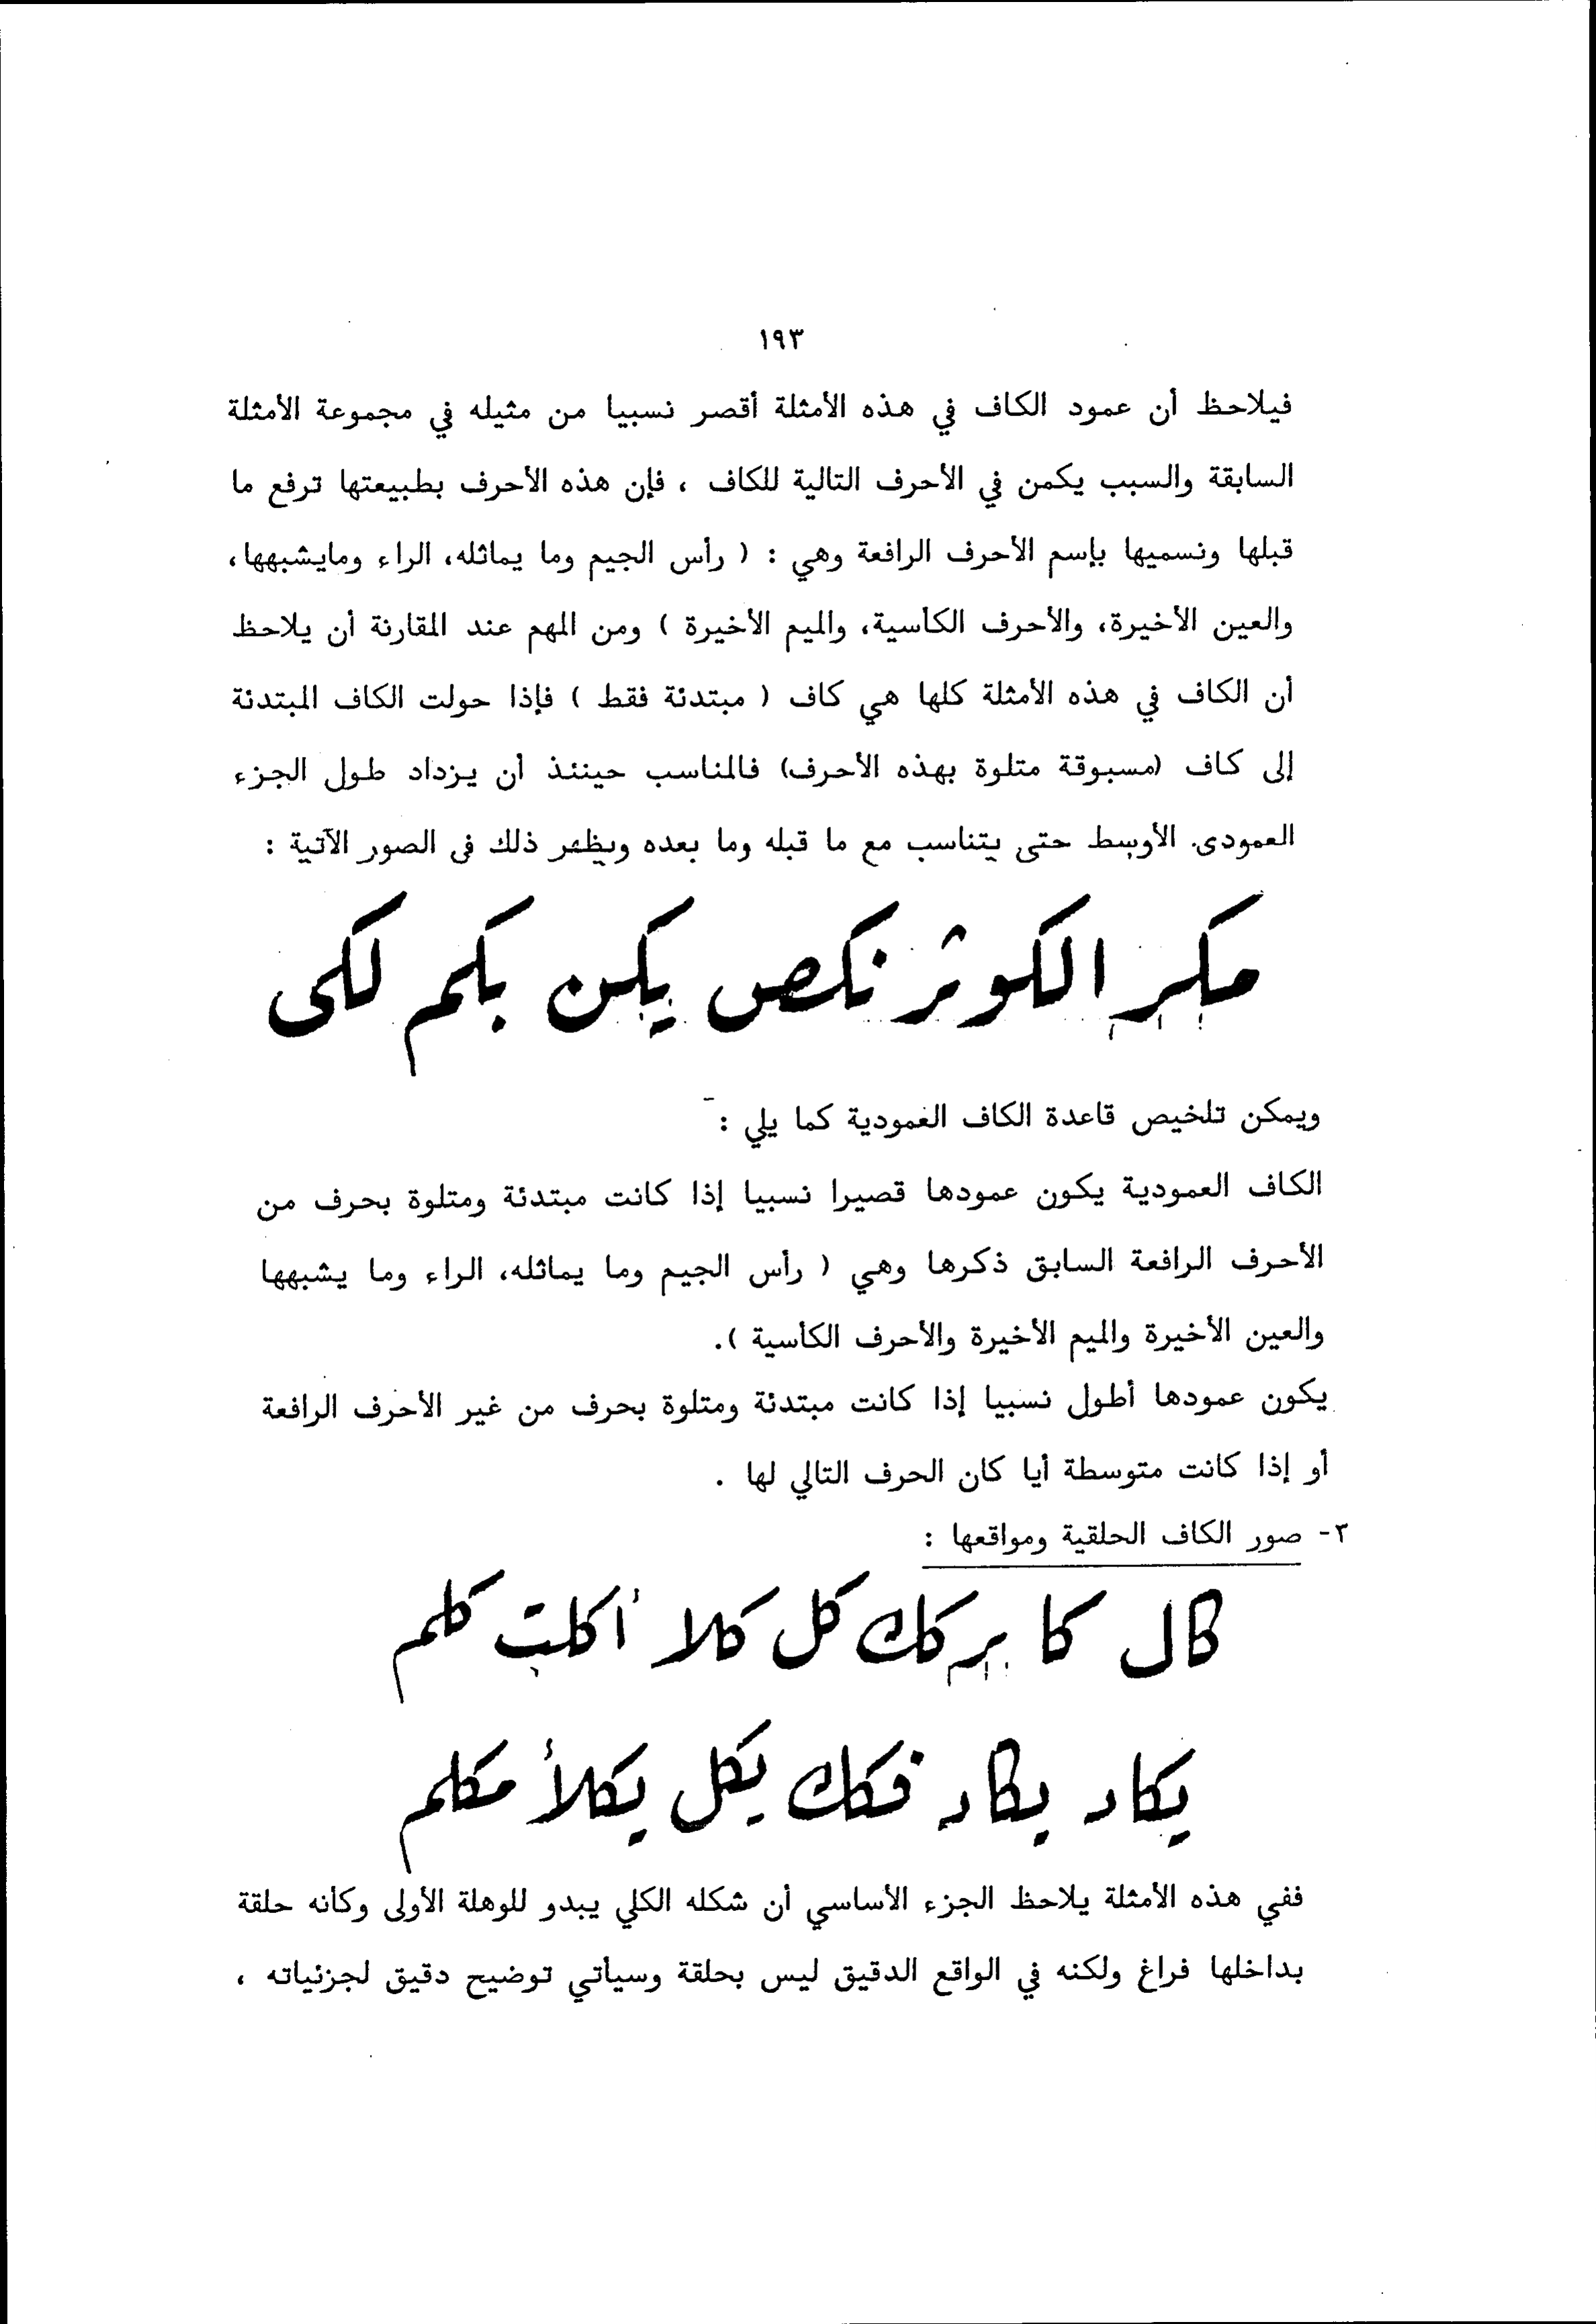 ١٩٣
فيلاحظ أن عمود الكاف في هذه الأمثلة أقصر نسبيا من مثيله في مجموعة الأمثلة
السابقة والسبب يكمن في الأحرف التالية للكاف ، فإن هذه الأحرف بطبيعتها ترفع ما
قبلها ونسميها بإسم الأحرف الرافعة وهي : ( رأس الجيم وما يماثله، الراء ومايشبهها،
والعين الأخيرة، والأحرف الكأسية، والميم الأخيرة ) ومن المهم عند المقارنة أن يلاحظ
أن الكاف في هذه الأمثلة كلها هي كاف ( مبتدئة فقط ) فإذا حولت الكاف المبتدئة
إلى كاف (مسبوقة متلوة بهذه الأحرف) فالمناسب حينئذ أن يزداد طول الجزء
العمودى الأوسط حتى يتناسب مع ما قبله وما بعده ويظهر ذلك فى الصور الآتية :
مكر الكوثر نكص يكن بكم لكى
ويمكن تلخيص قاعدة الكاف العمودية كما يلي :
الكاف العمودية يكون عمودها قصيرا نسبيا إذا كانت مبتدئة ومتلوة بحرف من
الأحرف الرافعة السابق ذكرها وهي ( رأس الجيم وما يماثله، الراء وما يشبهها
والعين الأخيرة والميم الأخيرة والأحرف الكأسية ).
يكون عمودها أطول نسبيا إذا كانت مبتدئة ومتلوة بحرف من غير الأحرف الرافعة
أو إذا كانت متوسطة أيا كان الحرف التالي لها .
٣- صور الكاف الحلقية ومواقعها :
كال كا بر كك كل كلا أكلت كلم
يكاد يكاد فكك يكل يكلأ مكلم
ففي هذه الأمثلة يلاحظ الجزء الأساسي أن شكله الكلي يبدو للوهلة الأولى وكأنه حلقة
بداخلها فراغ ولكنه في الواقع الدقيق ليس بحلقة وسيأتي توضيح دقيق لجزئياته ،